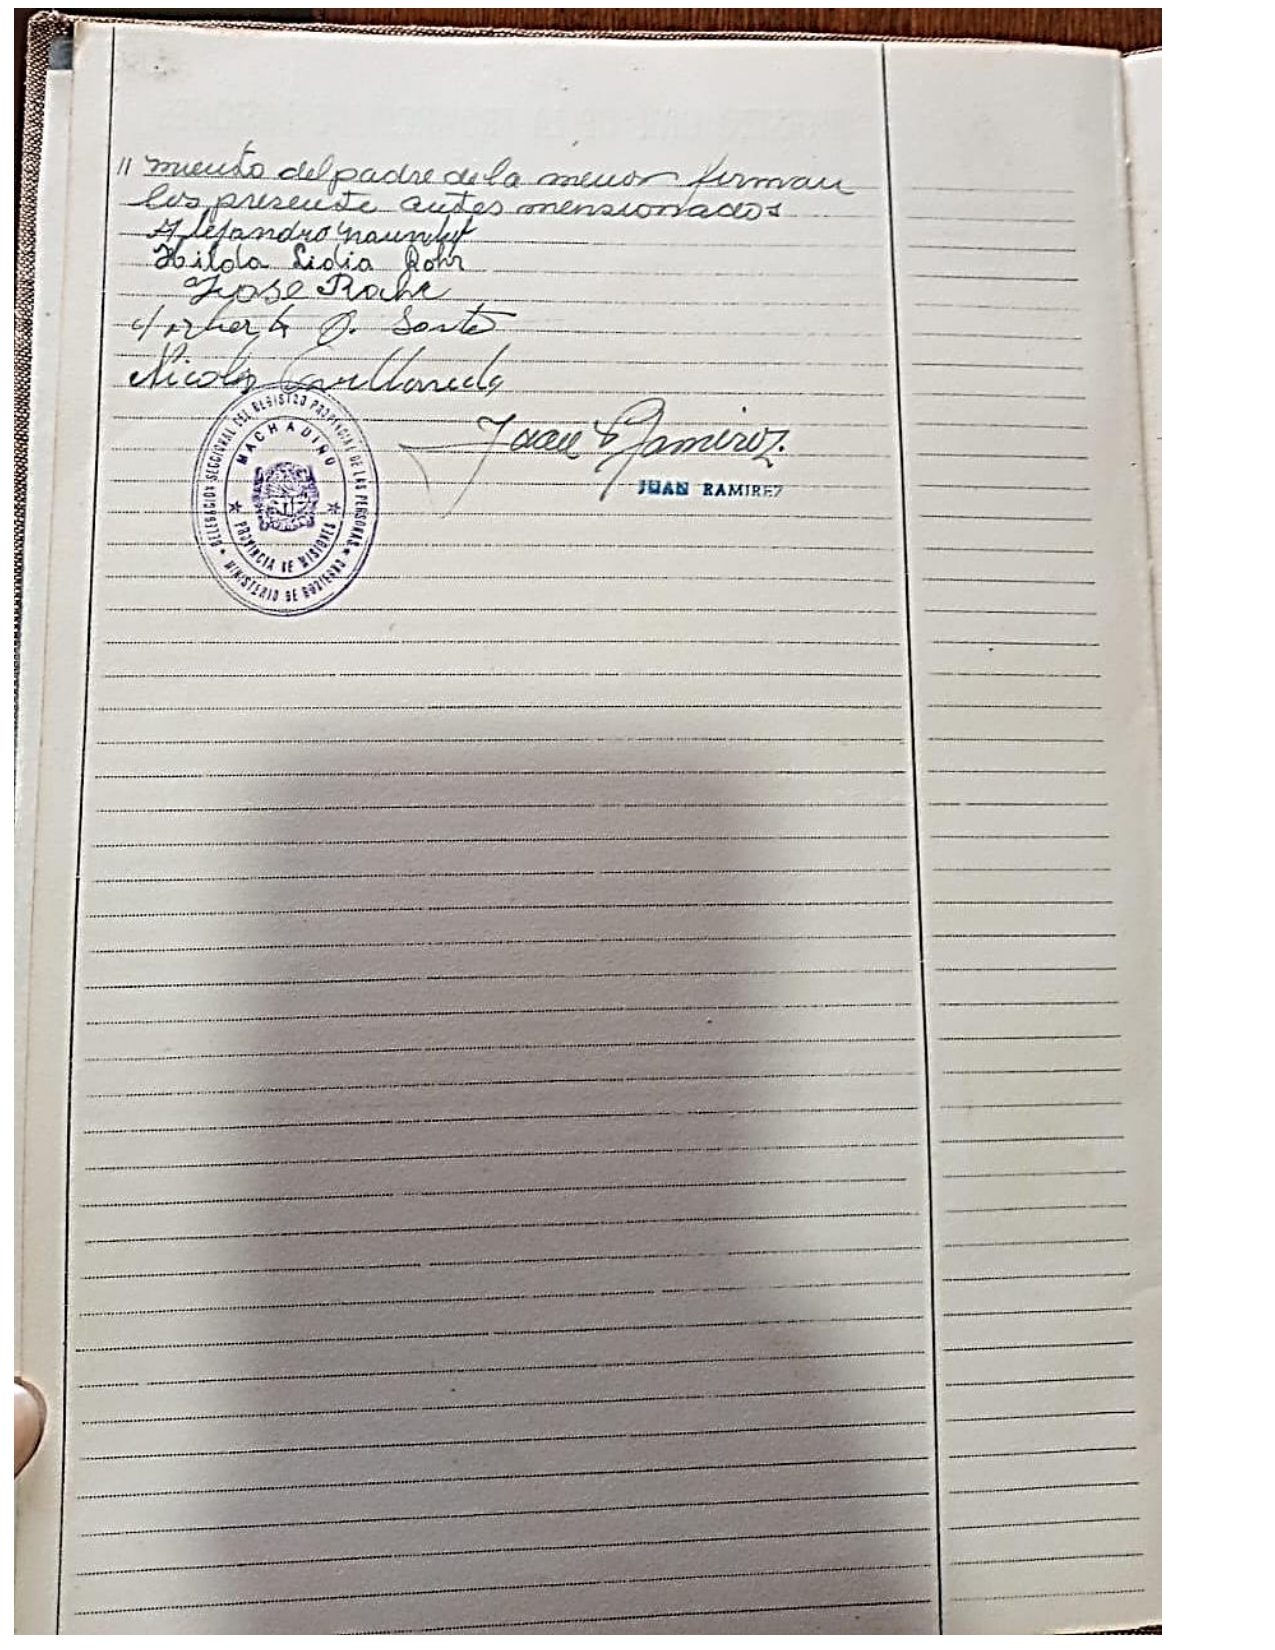 // miento del padre de la menor firman
los presente antes mensionados
Alejandro
Hilda Lidia Rohr
Jose Rohr
O.
Nicolas
Juan Ramirez.
JUAN RAMIREZ
DELEGACION SECCIONAL DEL REGISTRO PROVINCIAL DE LAS PERSONAS
MACHADIÑO
PROVINCIA DE MISIONES
MINISTERIO DE GOBIERNO